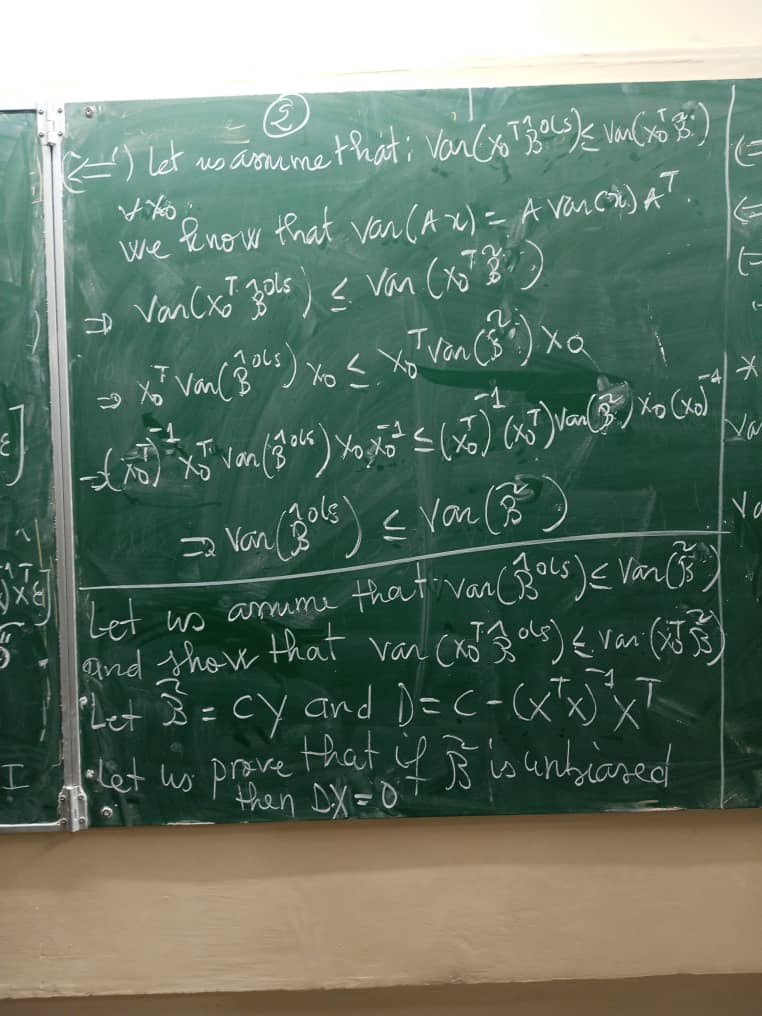 ②
(⇐) Let us assume that: Var(x₀ᵀβ̂ᵒˡˢ) ≤ Var(x₀ᵀβ̃)
∀ x₀.
we know that Var(Ax) = A Var(x) Aᵀ.
⇒ Var(x₀ᵀ β̂ᵒˡˢ) ≤ Var(x₀ᵀ β̃)
⇒ x₀ᵀ Var(β̂ᵒˡˢ) x₀ ≤ x₀ᵀ Var(β̃) x₀
⇒ (x₀ᵀ)⁻¹ x₀ᵀ Var(β̂ᵒˡˢ) x₀ x₀⁻¹ ≤ (x₀ᵀ)⁻¹ (x₀ᵀ) Var(β̃) x₀ (x₀)⁻¹
⇒ Var(β̂ᵒˡˢ) ≤ Var(β̃)
Let us assume that Var(β̂ᵒˡˢ) ≤ Var(β̃)
and show that Var(x₀ᵀβ̂ᵒˡˢ) ≤ Var(x₀ᵀβ̃)
Let β̃ = CY and D = C - (XᵀX)⁻¹Xᵀ
• Let us prove that if β̃ is unbiased
then DX = 0